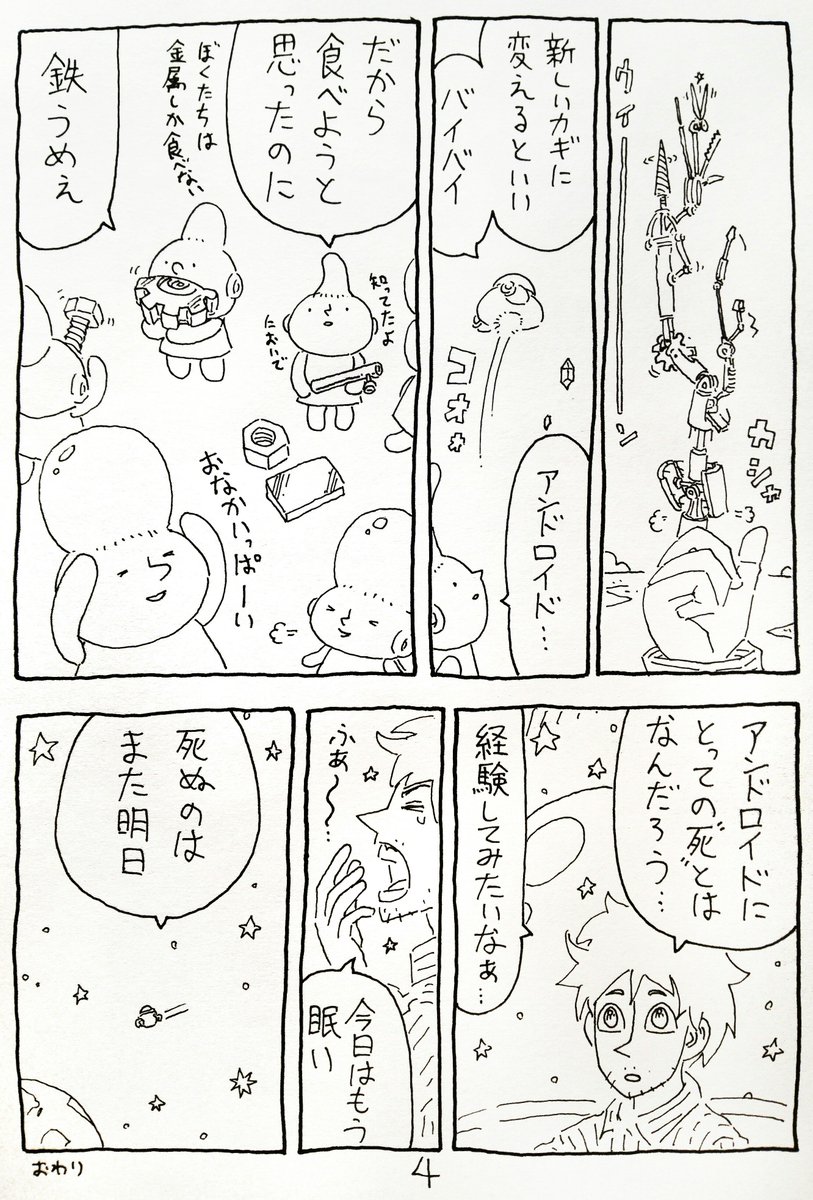 ウィーーン
カシャ
新しいカギに
変えるといい
バイバイ
コオォ
アンドロイド…
だから
食べようと
思ったのに
知ってたよ
においで
ぼくたちは
金属しか食べない
鉄うめえ
おなかいっぱーい
アンドロイドに
とっての〝死〟とは
なんだろう…
経験してみたいなぁ…
ふぁ〜〜…
今日はもう
眠い
死ぬのは
また明日
おわり
4